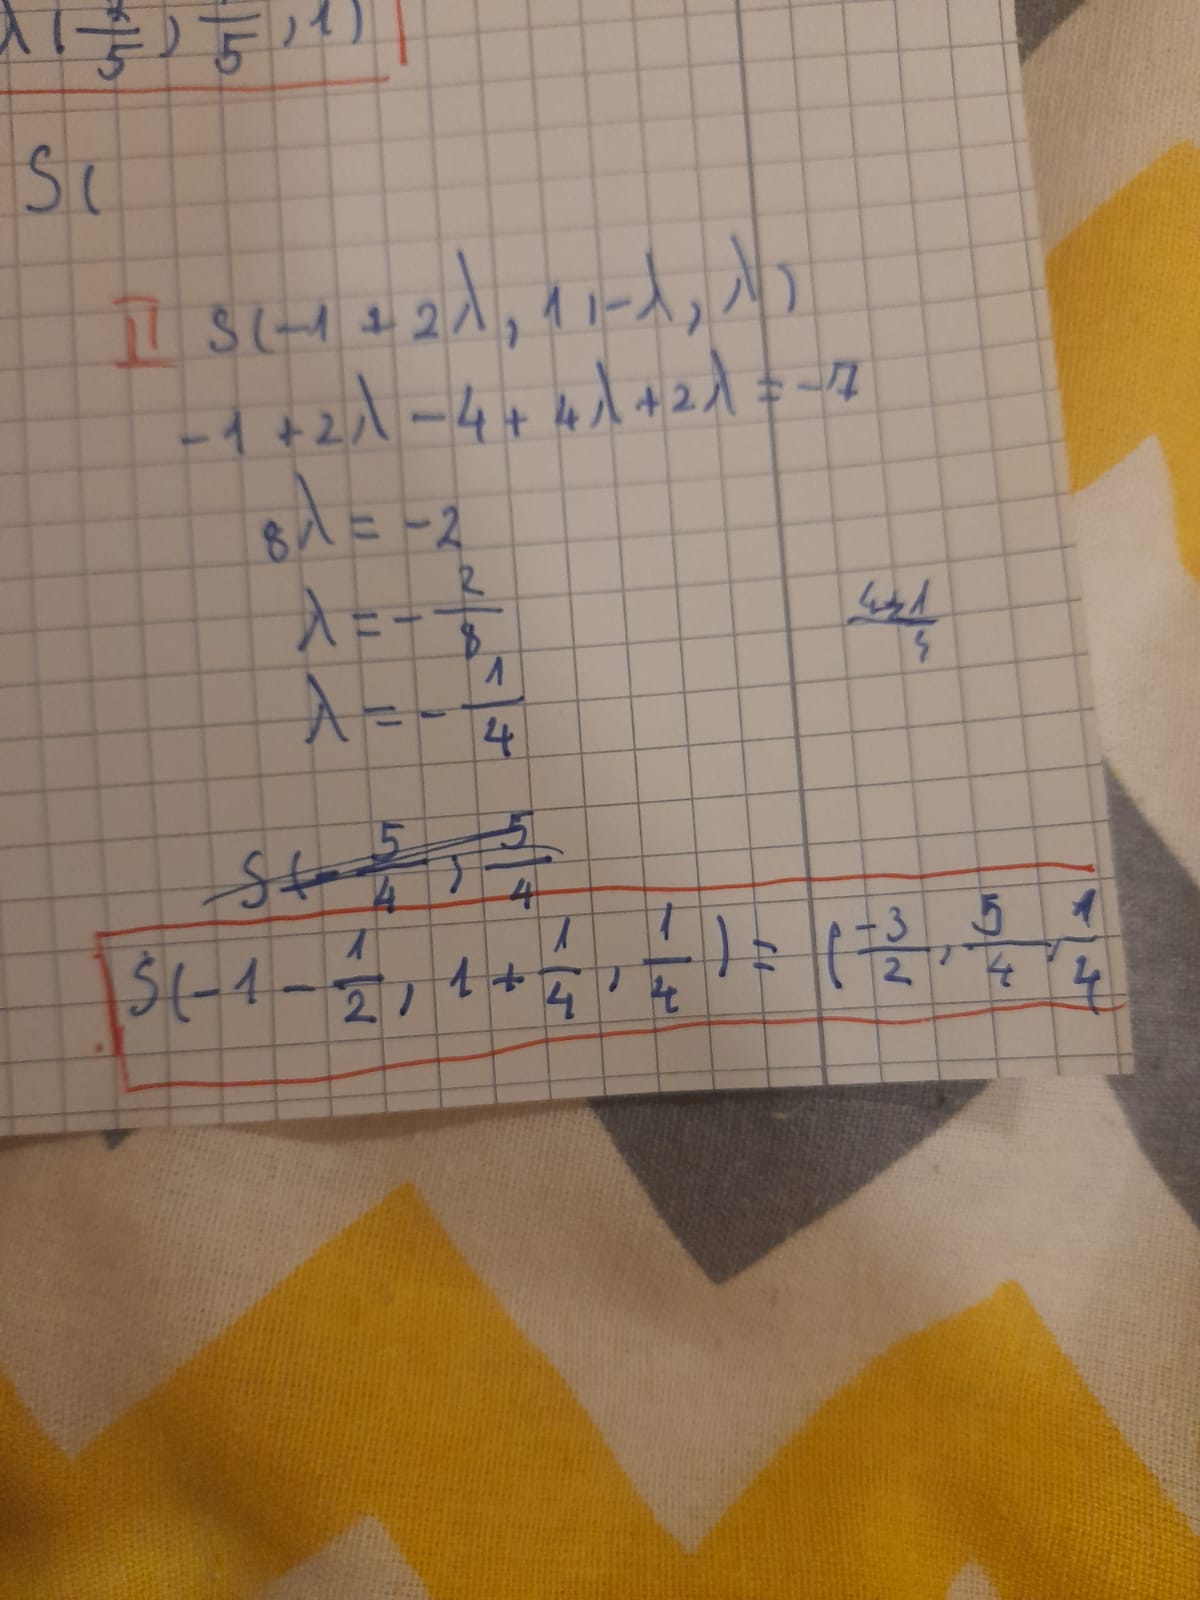 λ(/5, /5, 1)
S(
II S(-1 + 2λ, 1, -λ, λ)
-1 + 2λ - 4 + 4λ + 2λ = -7
8λ = -2
λ = - 2/8
4+1/4
λ = - 1/4
S(- 5/4, 5/4
S(-1 - 1/2, 1 + 1/4, 1/4) = (-3/2, 5/4, 1/4